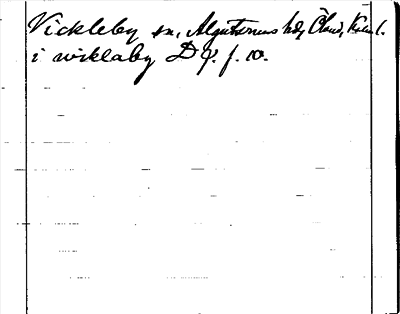 Vickleby sn, Algutsrums hd, Öland, Kalm l.
i wiklaby D 9. f. 10.